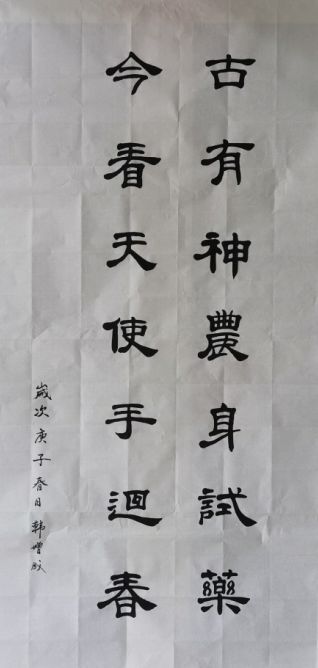 古有神農身試藥
今看天使手迴春
歲次庚子春日韩增